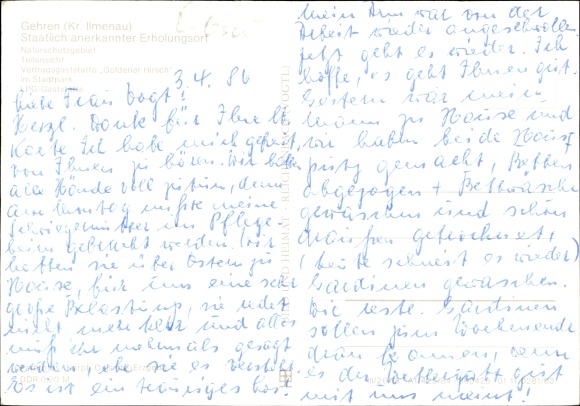 Gehren (Kr. Ilmenau)
Staatlich anerkannter Erholungsort
Naturschutzgebiet
Teilansicht
Vertragsgaststätte „Goldener Hirsch“
Im Stadtpark
LPG-Gaststätte
3.4. 86
Liebe Frau Vogt!
Herzl. Dank für Ihre lb.
Karte. Ich habe mich gefreut,
von Ihnen zu hören. Wir hatten
alle Hände voll zu tun, denn
am Samstag mußte meine
Schwiegermutter ins Pflege-
heim gebracht werden. Wir
hatten sie über Ostern zu
Hause, für uns eine sehr
große Belastung, sie redet
nicht mehr klar und alles
muß ihr mehrmals gesagt
werden, ehe sie es versteht.
Es ist ein trauriges Los.
DDR
Mein Arm war von der
Arbeit wieder angeschwollen
jetzt geht es wieder. Ich
hoffe, es geht Ihnen gut.
Gestern war mein
Mann zu Hause und
wir haben beide Haus-
putz gemacht, Betten
abgezogen + Bettwäsche
gewaschen und schön
draußen getrocknet,
(heute schneit es wieder)
Gardinen gewaschen.
Die restl. Gardinen
sollen zum Wochenende
dran kommen, wenn
es der Wettergott gut
mit uns meint!
BILD UND HEIMAT REICHENBACH (VOGTL)